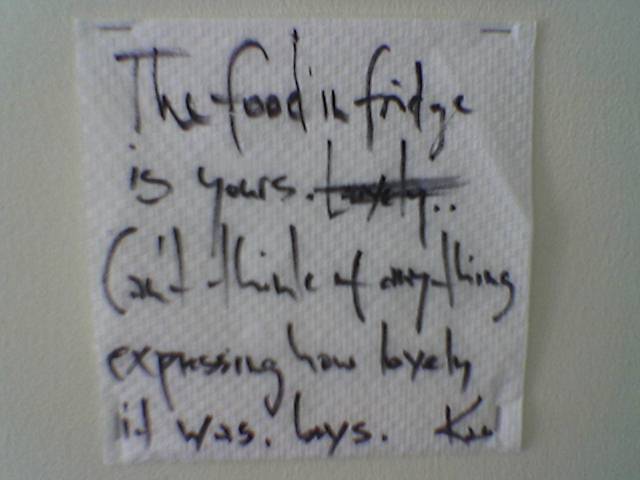 The food in fridge
is yours. Lovely..
Can't think of anything
expressing how lovely
it was.